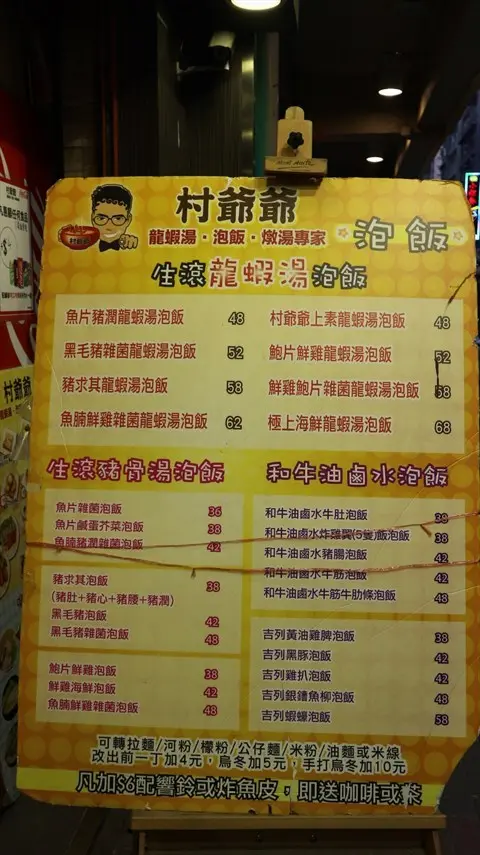 村爺爺
龍蝦湯·泡飯·燉湯專家
泡飯
生滾龍蝦湯泡飯
魚片豬潤龍蝦湯泡飯 48
黑毛豬雜菌龍蝦湯泡飯 52
豬求其龍蝦湯泡飯 58
魚腩鮮雞雜菌龍蝦湯泡飯 62
村爺爺上素龍蝦湯泡飯 48
鮑片鮮雞龍蝦湯泡飯 52
鮮雞鮑片雜菌龍蝦湯泡飯 58
極上海鮮龍蝦湯泡飯 68
生滾豬骨湯泡飯
魚片雜菌泡飯 36
魚片鹹蛋芥菜泡飯 38
魚腩豬潤雜菌泡飯 42
豬求其泡飯 38
(豬肚+豬心+豬腰+豬潤)
黑毛豬泡飯 42
黑毛豬雜菌泡飯 48
鮑片鮮雞泡飯 38
鮮雞海鮮泡飯 42
魚腩鮮雞雜菌泡飯 48
和牛油鹵水泡飯
和牛油鹵水牛肚泡飯 38
和牛油鹵水炸雞翼(5隻)飯泡飯 38
和牛油鹵水豬腸泡飯 42
和牛油鹵水牛筋泡飯 42
和牛油鹵水牛筋牛肋條泡飯 48
吉列黃油雞脾泡飯 38
吉列黑豚泡飯 42
吉列雞扒泡飯 42
吉列銀鱈魚柳泡飯 48
吉列蝦蠔泡飯 58
可轉拉麵/河粉/檬粉/公仔麵/米粉/油麵或米線
改出前一丁加4元，烏冬加5元，手打烏冬加10元
凡加$6配響鈴或炸魚皮，即送咖啡或茶